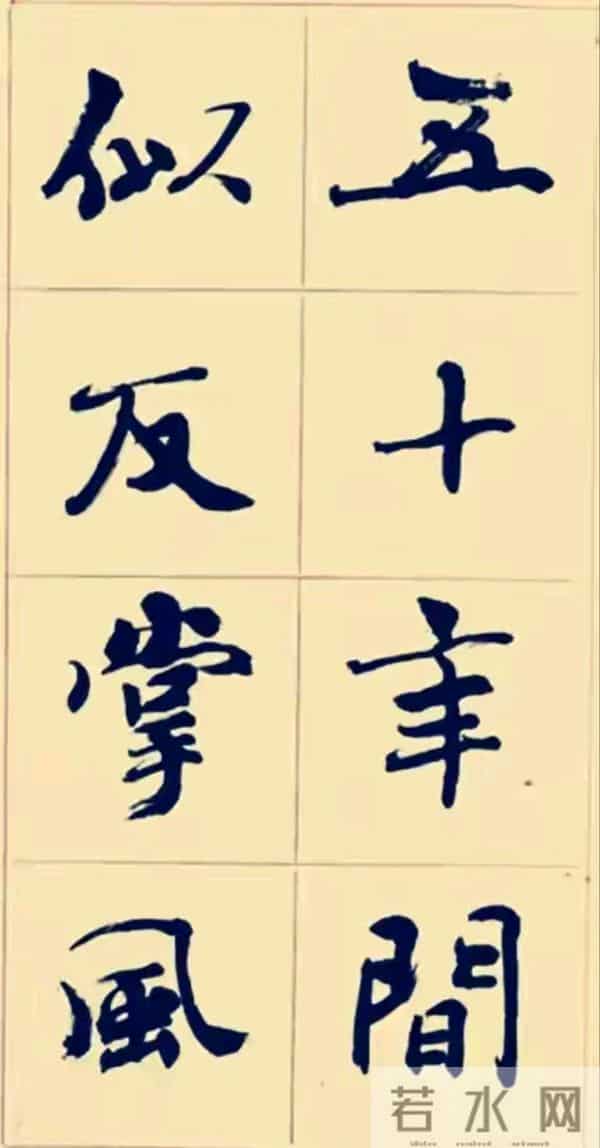 五十年間
似反掌風
若水网